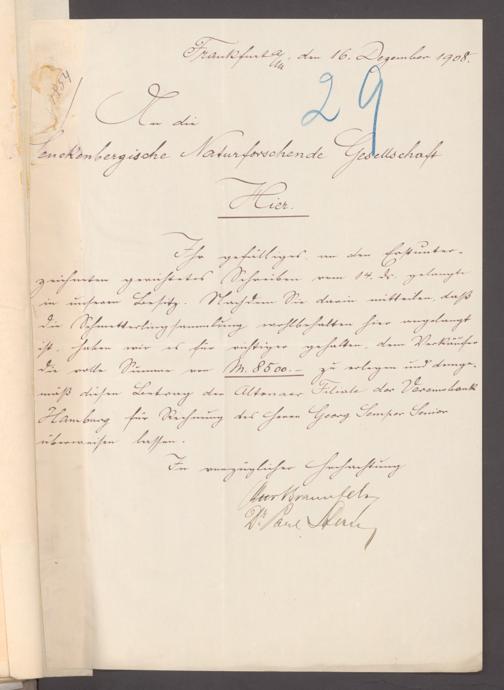 Frankfurt a/M. den 16. Dezember 1908.
29
An die
Senckenbergische Naturforschende Gesellschaft
Hier.
Ihr gefälliges, an den Erstunter-
zeichneten gerichtetes Schreiben vom 14. ds. gelangte
in unseren Besitz. Nachdem Sie darin mitteilen, daß
die Schmetterlingsammlung wohlbehalten hier angelangt
ist, haben wir es für richtiger gehalten, dem Verkäufer
die volle Summe von M. 8500.- zu erlegen und demge-
mäß diesen Betrag der Altonaer Filiale der Vereinsbank
Hamburg für Rechnung des Herrn Georg Semper Senior
überweisen lassen.
In vorzüglicher Hochachtung
Dr Paul Stern